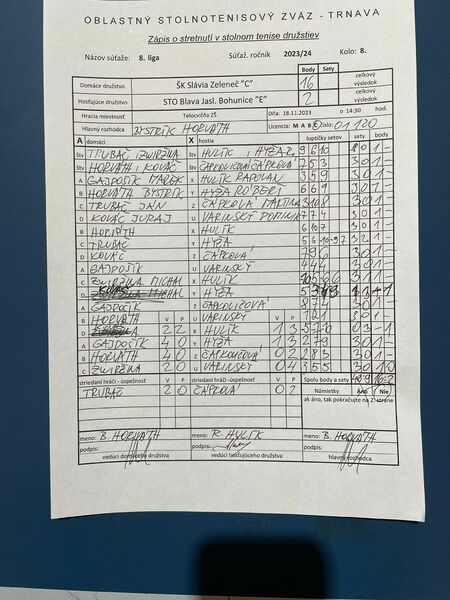 OBLASTNÝ STOLNOTENISOVÝ ZVÄZ - TRNAVA
Zápis o stretnutí v stolnom tenise družstiev
Názov súťaže: 8. liga Súťaž. ročník 2023/24 Kolo: 8.
Body Sety
Domáce družstvo ŠK Slávia Zeleneč "C" 16 celkový výsledok
Hosťujúce družstvo STO Blava Jasl. Bohunice "E" 2 celkový výsledok
Hracia miestnosť Telocvičňa ZŠ Dňa: 18.11.2023 o 14:30 hod.
Hlavný rozhodca BYSTRÍK HORVÁTH Licencia: M A B C číslo: 01120
A domáci X hostia loptičky setov sety body
štv TRUBAČ, ZWIRZINA štv HULÍK, HÝŽA R.
štv HORVÁTH, KOVÁČ štv 7 5 3 3 0 1 -
A GAJDOŠÍK MAREK X HULÍK RADOVAN 3 5 9 3 0 1 -
B HORVÁTH BYSTRÍK Y HÝŽA RÓBERT 6 6 9 3 0 1 -
C TRUBAČ JÁN Z ČÁPKOVÁ MARTINA 3 0 1 -
D KOVÁČ JURAJ U VARINSKÝ 7 7 4 3 0 1 -
B HORVÁTH X HULÍK 6 10 7 3 0 1 -
C TRUBAČ Y HÝŽA 5 6 -10 -9 7 3 2 1 -
D KOVÁČ Z ČÁPKOVÁ 7 9 6 3 0 1 -
A GAJDOŠÍK U VARINSKÝ 4 4 6 3 0 1 -
C ZWIRZINA MICHAL X HULÍK 3 0 1 -
D KOVÁČ Y HÝŽA
A GAJDOŠÍK Z 8 7 4 3 0 1 -
B HORVÁTH V P U VARINSKÝ V P 1 2 1 3 0 1 -
D 2 2 X HULÍK 1 3 -5 -7 -10 0 3 - 1
A GAJDOŠÍK 4 0 Y HÝŽA 1 3 2 7 9 3 0 1 -
B HORVÁTH 4 0 Z 0 2 2 8 3 3 0 1 -
C ZWIRZINA 2 0 U VARINSKÝ 0 4 3 5 5 3 0 1 0
striedaní hráči - úspešnosť V P striedaní hráči - úspešnosť V P Spolu body a sety 16 2
TRUBAČ 2 0 ČÁPKOVÁ 0 2 Námietky Áno Nie
ak áno, tak pokračujte na 2. strane
meno: B. HORVÁTH meno: R. HULÍK meno: B. HORVÁTH
podpis: podpis: podpis:
vedúci domáceho družstva vedúci hosťujúceho družstva hlavný rozhodca